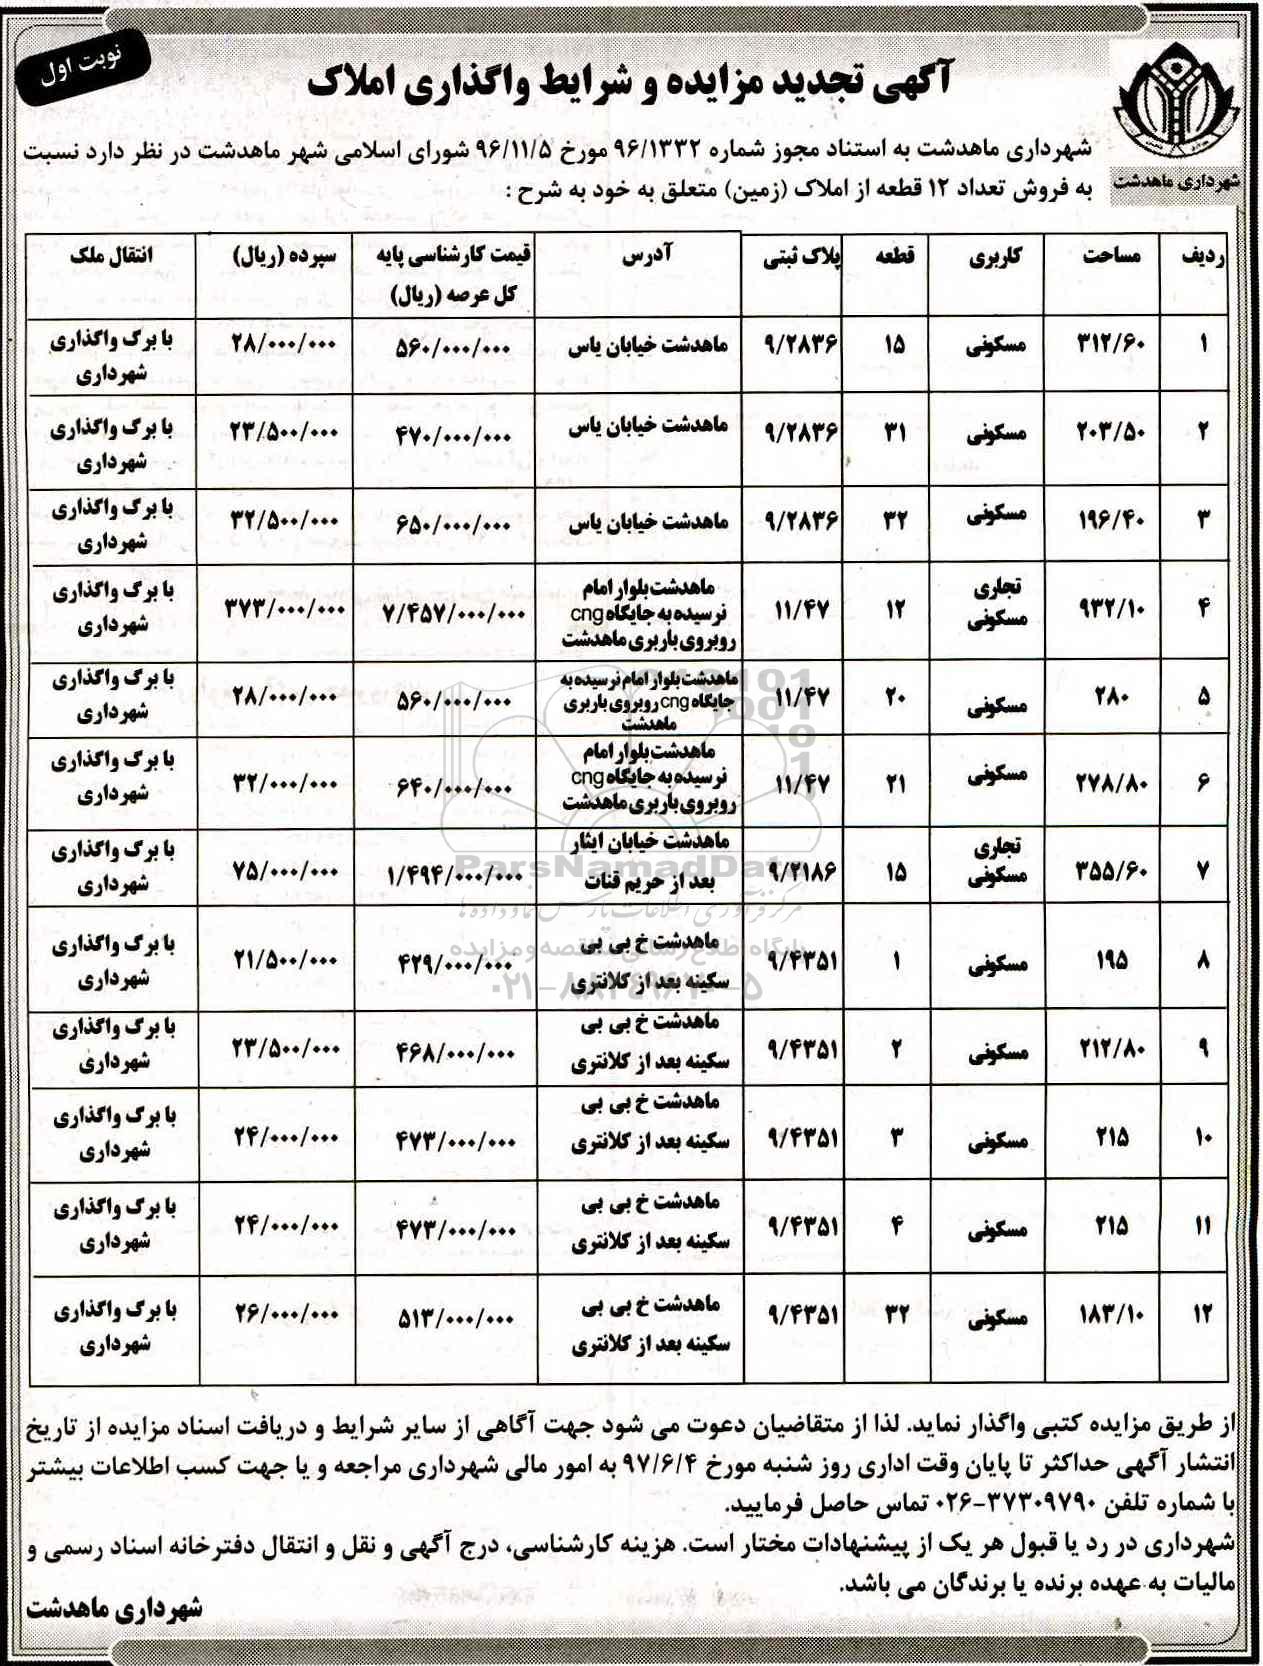 نوبت اول
آگهی تجدید مزایده و شرایط واگذاری املاک
شهرداری ماهدشت
شهرداری ماهدشت به استناد مجوز شماره ۹۶/۱۳۳۲ مورخ ۹۶/۱۱/۵ شورای اسلامی شهر ماهدشت در نظر دارد نسبت
به فروش تعداد ۱۲ قطعه از املاک (زمین) متعلق به خود به شرح :
ردیف مساحت کاربری قطعه پلاک ثبتی آدرس قیمت کارشناسی پایه کل عرصه (ریال) سپرده (ریال) انتقال ملک
۱ ۳۱۲/۶۰ مسکونی ۱۵ ۹/۲۸۳۶ ماهدشت خیابان یاس ۵۶۰/۰۰۰/۰۰۰ ۲۸/۰۰۰/۰۰۰ با برگ واگذاری شهرداری
۲ ۲۰۳/۵۰ مسکونی ۳۱ ۹/۲۸۳۶ ماهدشت خیابان یاس ۴۷۰/۰۰۰/۰۰۰ ۲۳/۵۰۰/۰۰۰ با برگ واگذاری شهرداری
۳ ۱۹۶/۴۰ مسکونی ۳۲ ۹/۲۸۳۶ ماهدشت خیابان یاس ۶۵۰/۰۰۰/۰۰۰ ۳۲/۵۰۰/۰۰۰ با برگ واگذاری شهرداری
۴ ۹۳۲/۱۰ تجاری مسکونی ۱۲ ۱۱/۴۷ ماهدشت بلوار امام نرسیده به جایگاه cng روبروی باربری ماهدشت ۷/۴۵۷/۰۰۰/۰۰۰ ۳۷۳/۰۰۰/۰۰۰ با برگ واگذاری شهرداری
۵ ۲۸۰ مسکونی ۲۰ ۱۱/۴۷ ماهدشت بلوار امام نرسیده به جایگاه cng روبروی باربری ماهدشت ۵۶۰/۰۰۰/۰۰۰ ۲۸/۰۰۰/۰۰۰ با برگ واگذاری شهرداری
۶ ۲۷۸/۸۰ مسکونی ۲۱ ۱۱/۴۷ ماهدشت بلوار امام نرسیده به جایگاه cng روبروی باربری ماهدشت ۶۴۰/۰۰۰/۰۰۰ ۳۲/۰۰۰/۰۰۰ با برگ واگذاری شهرداری
۷ ۳۵۵/۶۰ تجاری مسکونی ۱۵ ۹/۲۱۸۶ ماهدشت خیابان ایثار بعد از حریم قنات ۱/۴۹۴/۰۰۰/۰۰۰ ۷۵/۰۰۰/۰۰۰ با برگ واگذاری شهرداری
۸ ۱۹۵ مسکونی ۱ ۹/۴۳۵۱ ماهدشت خ بی بی سکینه بعد از کلانتری ۴۲۹/۰۰۰/۰۰۰ ۲۱/۵۰۰/۰۰۰ با برگ واگذاری شهرداری
۹ ۲۱۲/۸۰ مسکونی ۲ ۹/۴۳۵۱ ماهدشت خ بی بی سکینه بعد از کلانتری ۴۶۸/۰۰۰/۰۰۰ ۲۳/۵۰۰/۰۰۰ با برگ واگذاری شهرداری
۱۰ ۲۱۵ مسکونی ۳ ۹/۴۳۵۱ ماهدشت خ بی بی سکینه بعد از کلانتری ۴۷۳/۰۰۰/۰۰۰ ۲۴/۰۰۰/۰۰۰ با برگ واگذاری شهرداری
۱۱ ۲۱۵ مسکونی ۴ ۹/۴۳۵۱ ماهدشت خ بی بی سکینه بعد از کلانتری ۴۷۳/۰۰۰/۰۰۰ ۲۴/۰۰۰/۰۰۰ با برگ واگذاری شهرداری
۱۲ ۱۸۳/۱۰ مسکونی ۳۲ ۹/۴۳۵۱ ماهدشت خ بی بی سکینه بعد از کلانتری ۵۱۳/۰۰۰/۰۰۰ ۲۶/۰۰۰/۰۰۰ با برگ واگذاری شهرداری
ParsNamadData
مرکز فرآوری اطلاعات پارس نماد داده ها
از طریق مزایده کتبی واگذار نماید. لذا از متقاضیان دعوت می شود جهت آگاهی از سایر شرایط و دریافت اسناد مزایده از تاریخ
انتشار آگهی حداکثر تا پایان وقت اداری روز شنبه مورخ ۹۷/۶/۴ به امور مالی شهرداری مراجعه و یا جهت کسب اطلاعات بیشتر
با شماره تلفن ۳۷۳۰۹۷۹۰-۰۲۶ تماس حاصل فرمایید.
شهرداری در رد یا قبول هر یک از پیشنهادات مختار است. هزینه کارشناسی، درج آگهی و نقل و انتقال دفترخانه اسناد رسمی و
مالیات به عهده برنده یا برندگان می باشد.
شهرداری ماهدشت